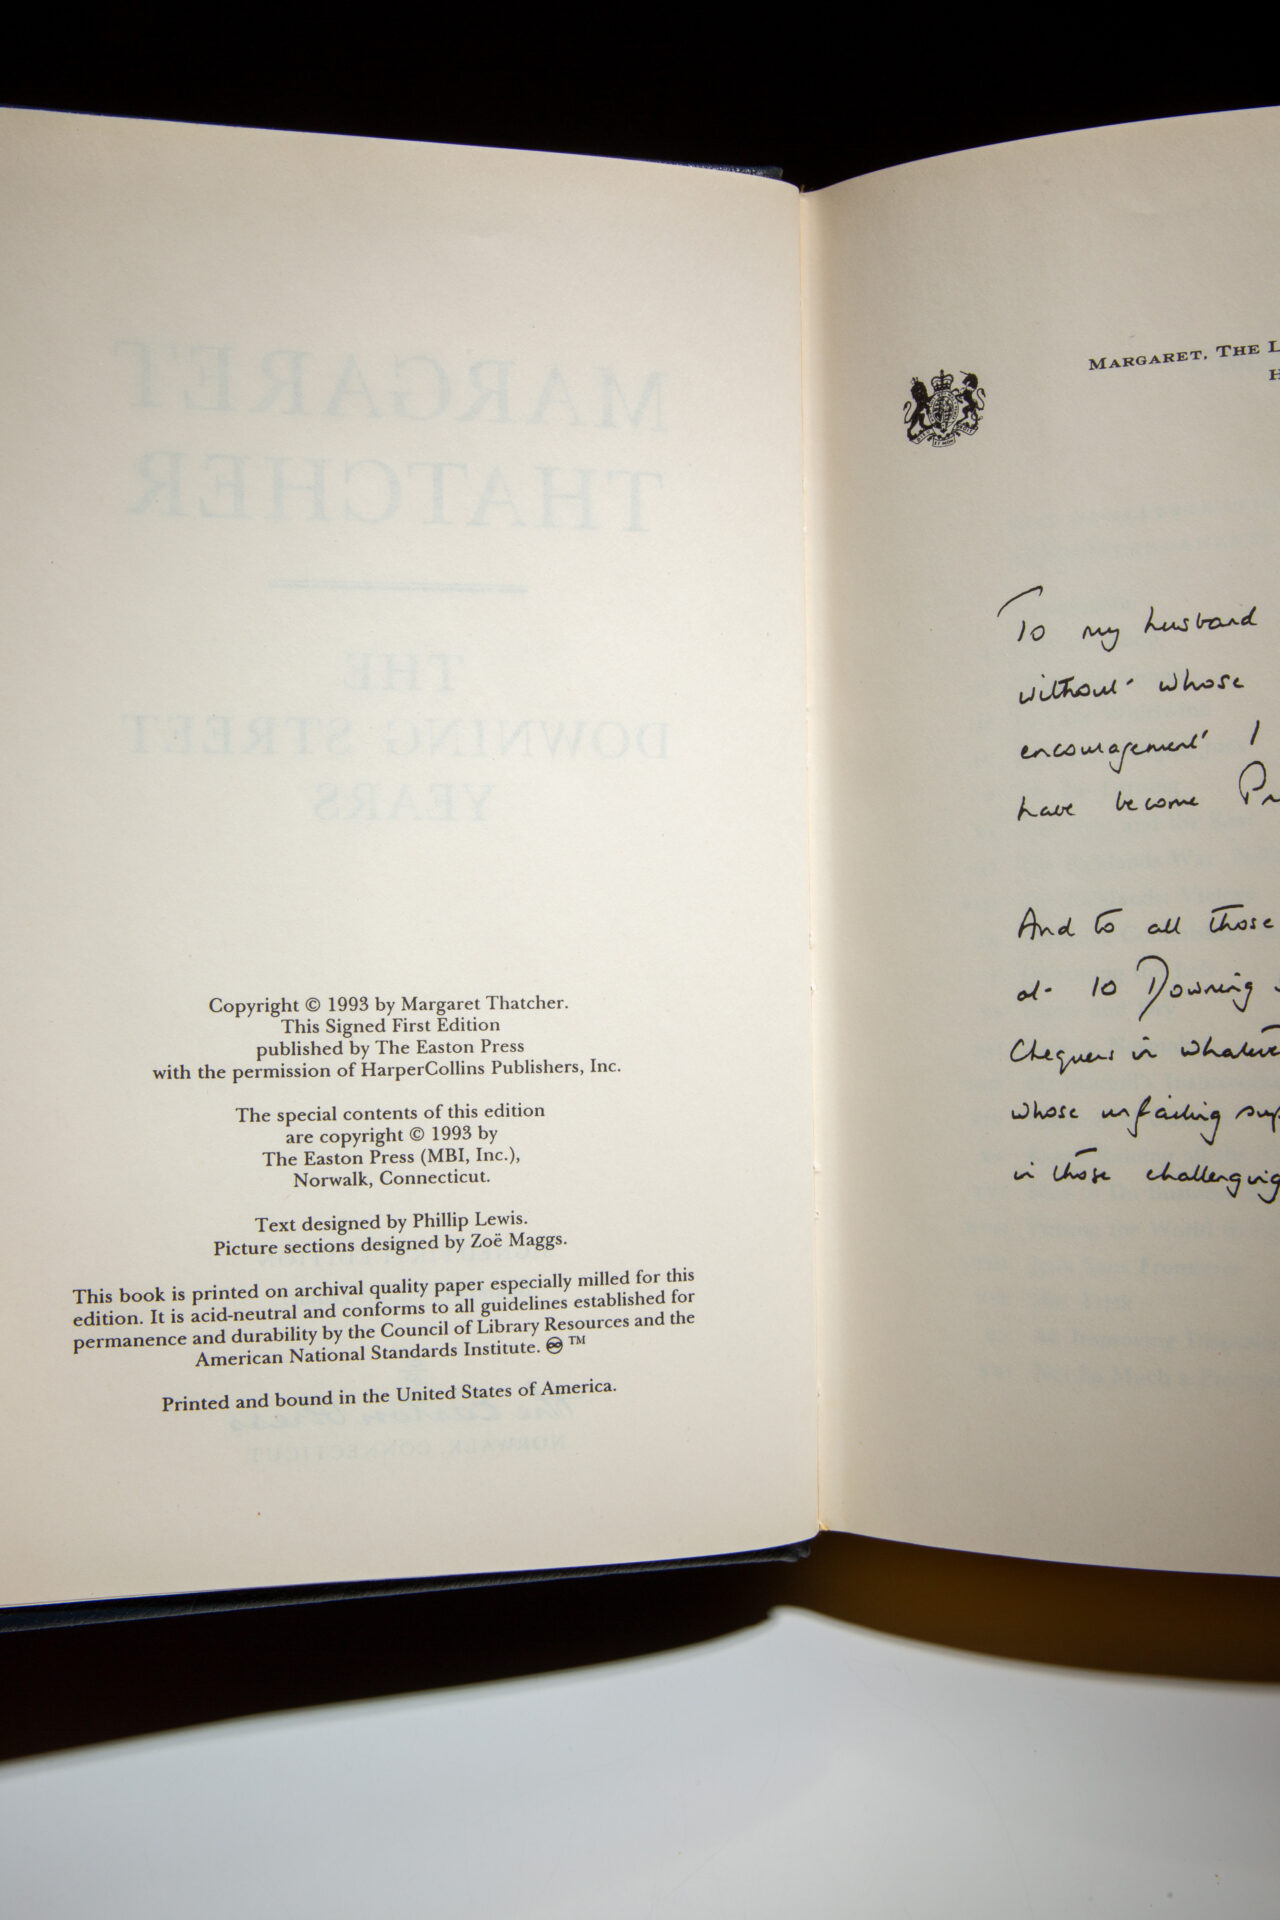 MARGARET
THATCHER
THE
DOWNING STREET
YEARS
Copyright © 1993 by Margaret Thatcher.
This Signed First Edition
published by The Easton Press
with the permission of HarperCollins Publishers, Inc.
The special contents of this edition
are copyright © 1993 by
The Easton Press (MBI, Inc.),
Norwalk, Connecticut.
Text designed by Phillip Lewis.
Picture sections designed by Zoë Maggs.
This book is printed on archival quality paper especially milled for this
edition. It is acid-neutral and conforms to all guidelines established for
permanence and durability by the Council of Library Resources and the
American National Standards Institute. ♾ ™
Printed and bound in the United States of America.
The Easton Press
NORWALK, CONNECTICUT
MARGARET, THE L
H
To my husband
without whose
encouragement I
have become Pr
And to all those
at 10 Downing
Chequers in whateve
whose unfailing sup
in those challenging